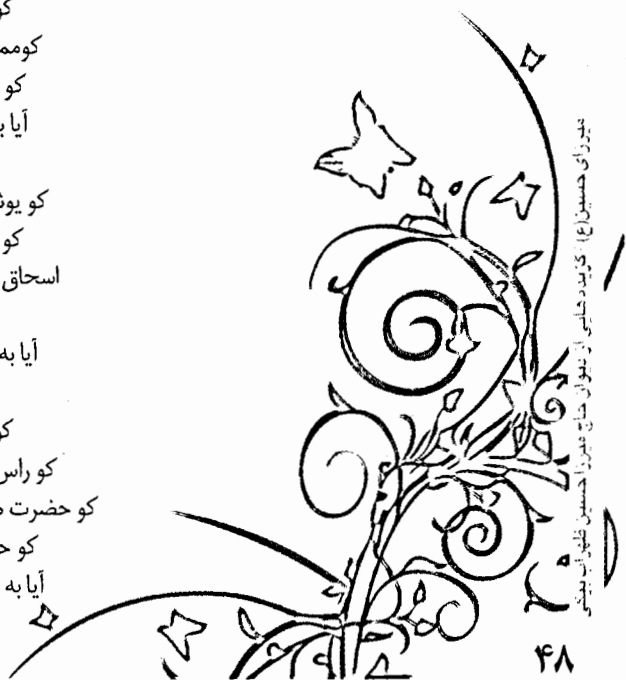 کو
کومم
کو
آیا ب
کو یوش
کو
اسحاق
آیا به
کو
کو راس
کو حضرت
کو ح
آیا به
میرزای حسین(ع): گزیده‌هایی از دیوان حاج میرزا حسین
۴۸